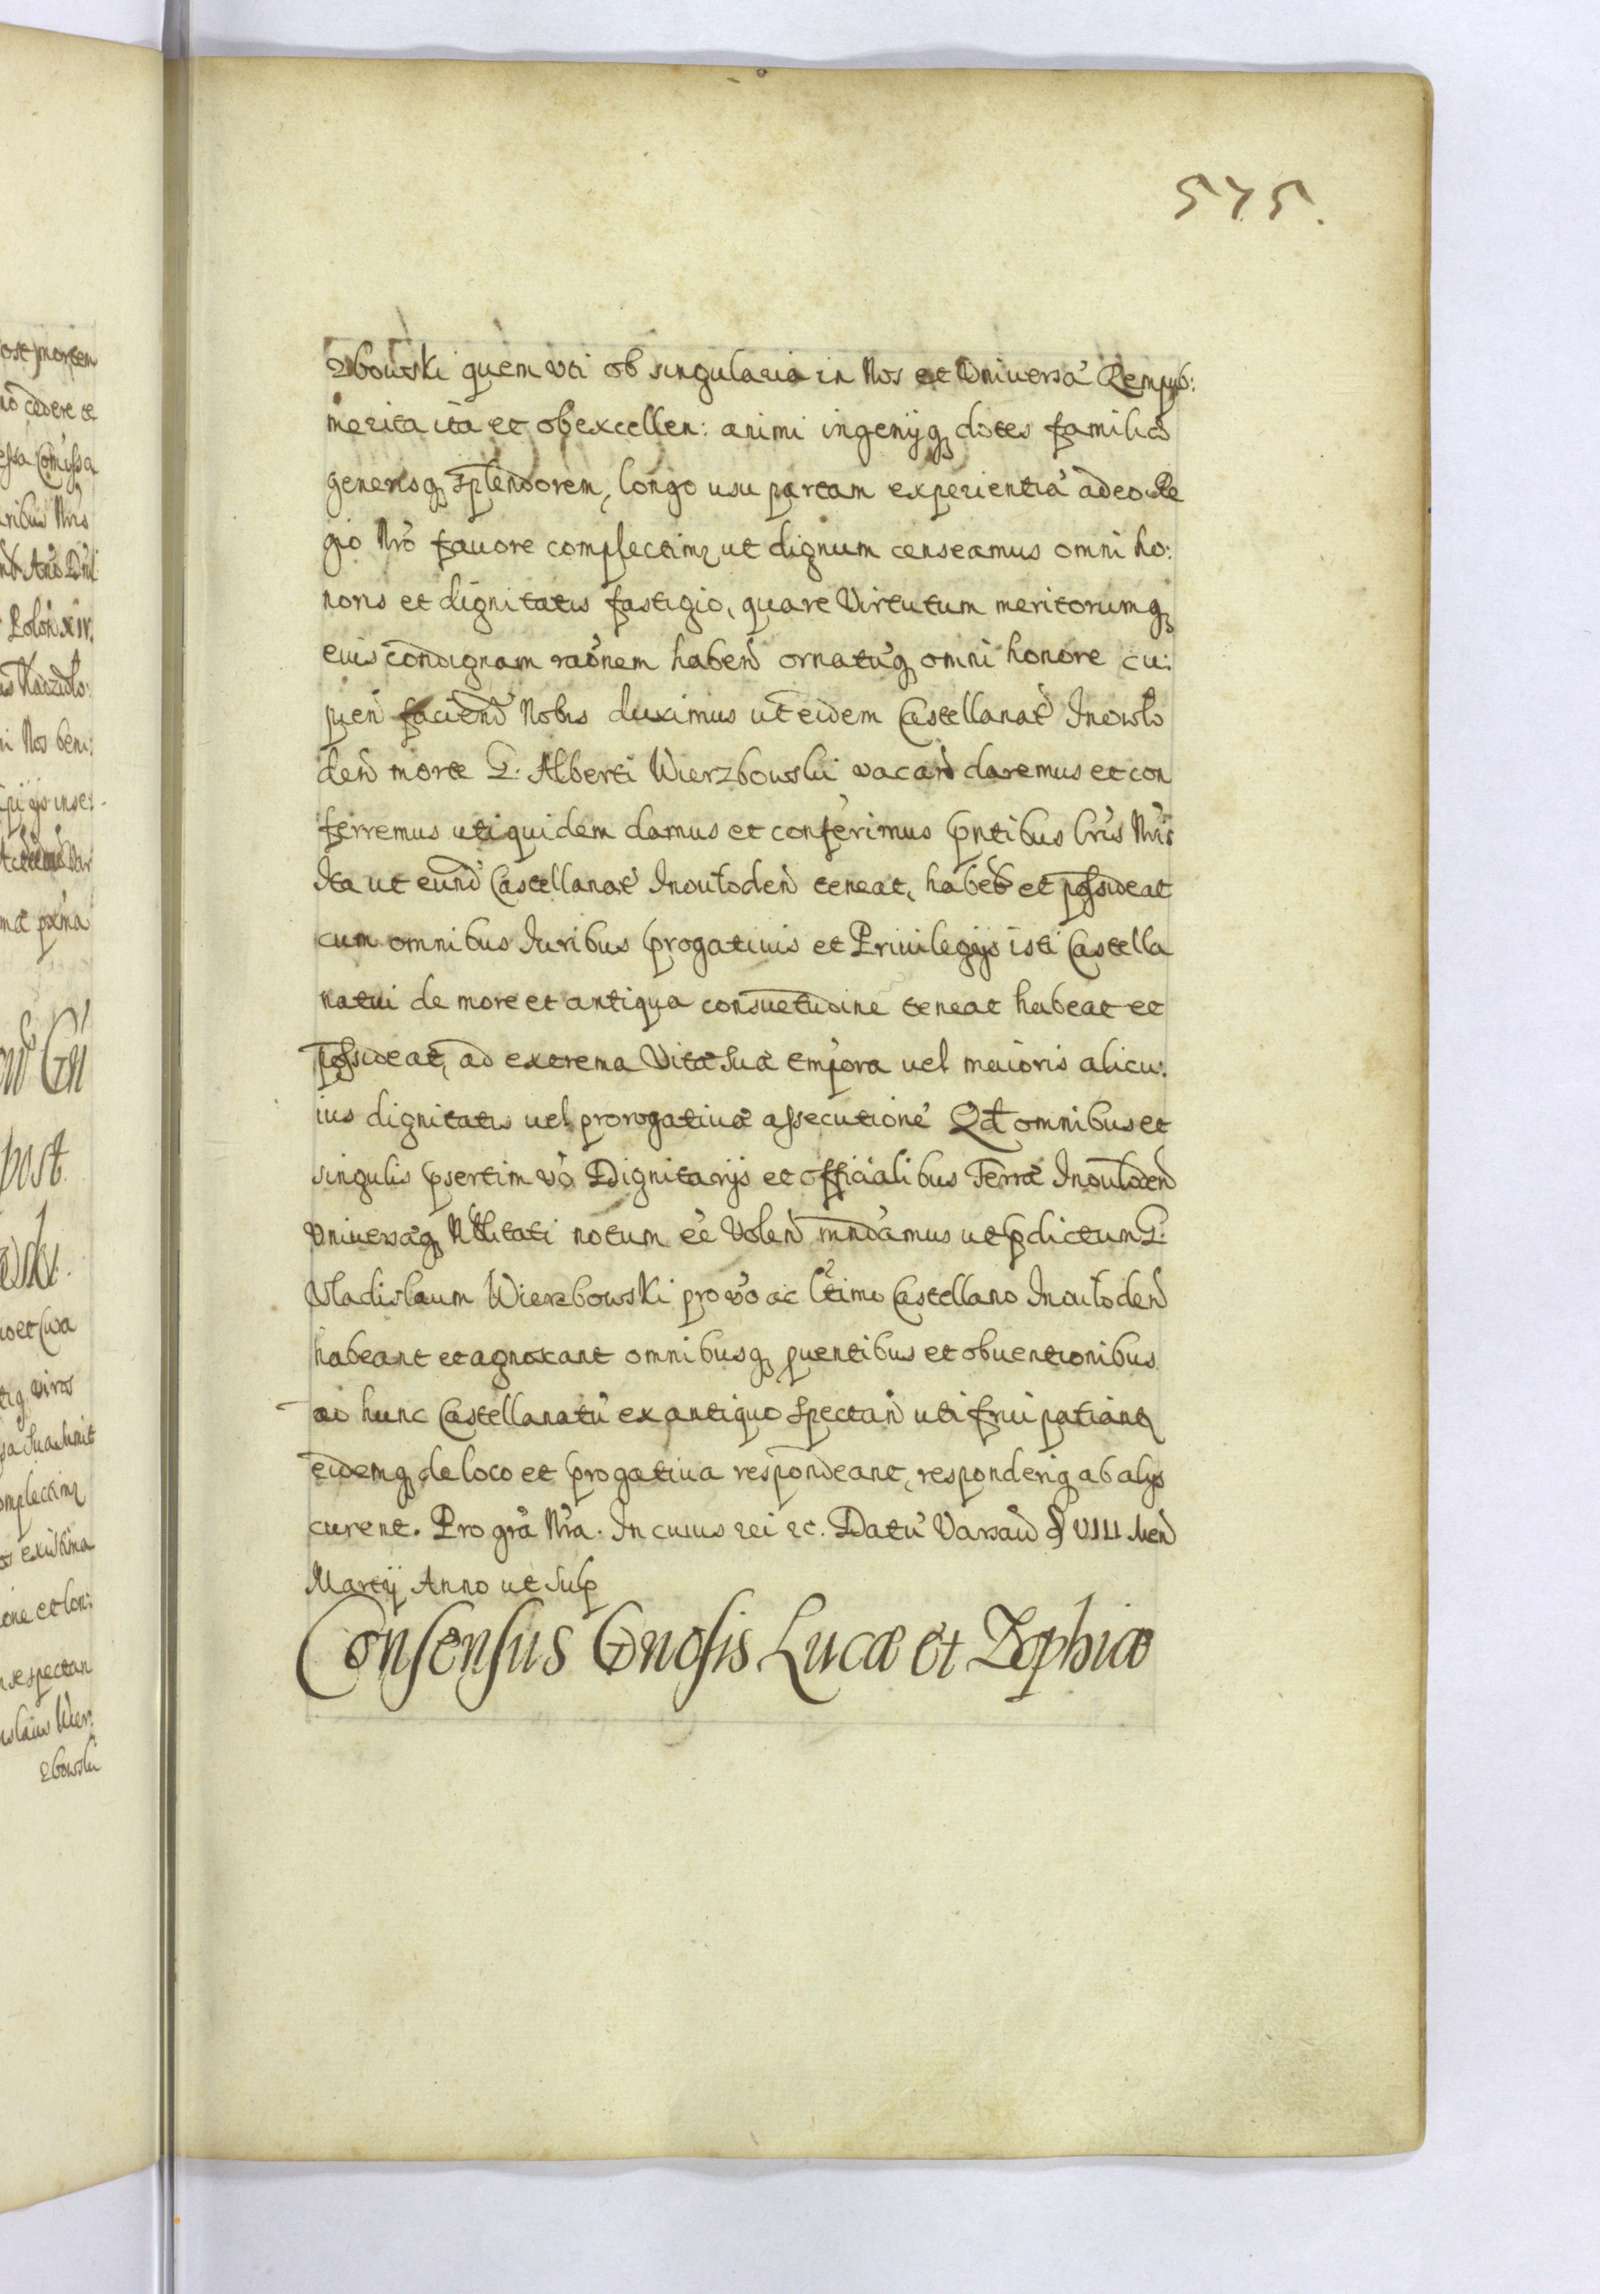 575.
zbowski quem uti ob singularia in Nos et Universã Rempub:
merita ita et ob excellen: animi ingenijq̃ dotes familiæ
generisq̃ splendorem, longo usu partam experientiã adeo Re
gio Nro favore complectimr ut dignum censeamus omni ho:
noris et dignitatis fastigio, quare Virtutum meritorumq̃
eius condignam raõnem haben̄ ornatũq̃ omni honore cu:
pien̄ faciend̄ Nobis duximus ut eidem Castellanat̄ Inowlo
den̄ morte G. Alberti Wierzbowski vacan̄ daremus et con
ferremus uti quidem damus et conferimus pñtibus lr̃is Nr̃is
Ita ut eund̄ Castellanat̄ Inowloden̄ teneat, habeat et possideat
cum omnibus Iuribus progativis et Privilegijs isti Castella
natui de more et antiqua consuetudine teneat habeat et
possideat, ad extrema Vitæ Suæ tempora vel maioris alicu:
ius dignitatis vel prorogativæ assecutionẽ Qd omnibus et
singulis psertim vo Dignitarijs et officialibus Terræ Inowloden̄
Universæq̃ Nblitati notum ee Volen̄ mndamus ut pdictum G.
Vladislaum Wierzbowski pro vo ac ltimo Castellano Inowloden̄
habeant et agnoscant omnibusq̃ pventibus et obventionibus
ad hunc Castellanatũ ex antiquo spectan̄ uti frui patiantr
eidemq̃ de loco et progativa respondeant, responderiq̃ ab alijs
curent. Pro grã Nrã. In cuius rei ꝛc. Datũ Varsav̄ D VIII Men̄
Martij Anno ut Sup
Consensus Gnosis Lucæ et Zophiæ